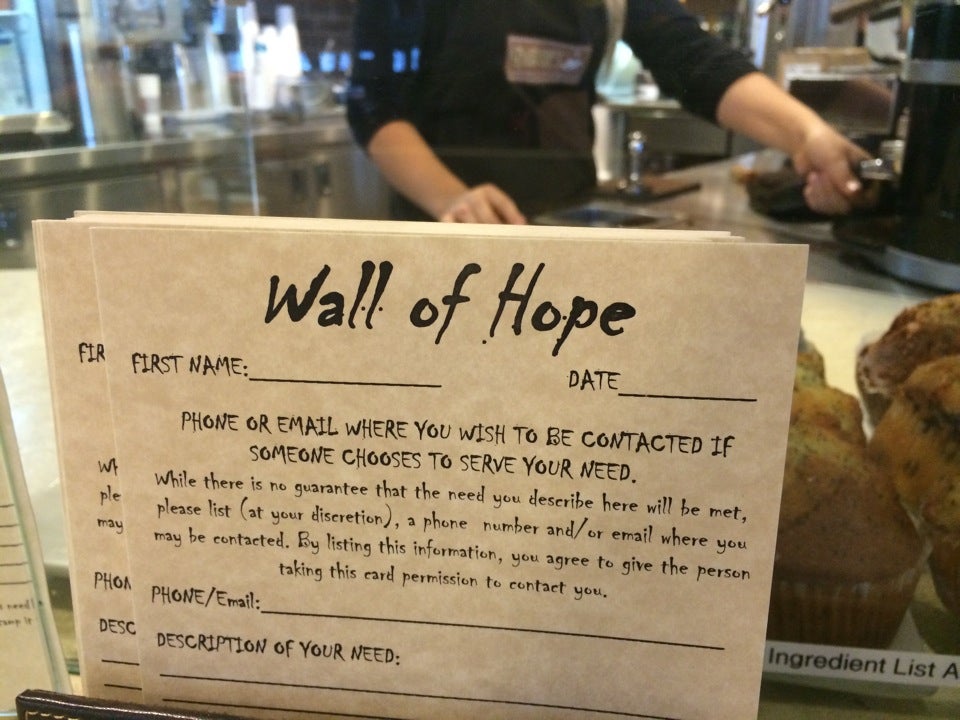 Wall of Hope
FIRST NAME:
DATE
PHONE OR EMAIL WHERE YOU WISH TO BE CONTACTED IF
SOMEONE CHOOSES TO SERVE YOUR NEED.
While there is no guarantee that the need you describe here will be met,
please list (at your discretion), a phone number and/or email where you
may be contacted. By listing this information, you agree to give the person
taking this card permission to contact you.
PHONE/Email:
DESCRIPTION OF YOUR NEED:
FIR
ple
may
PHON
DESC
need!
Ingredient List A